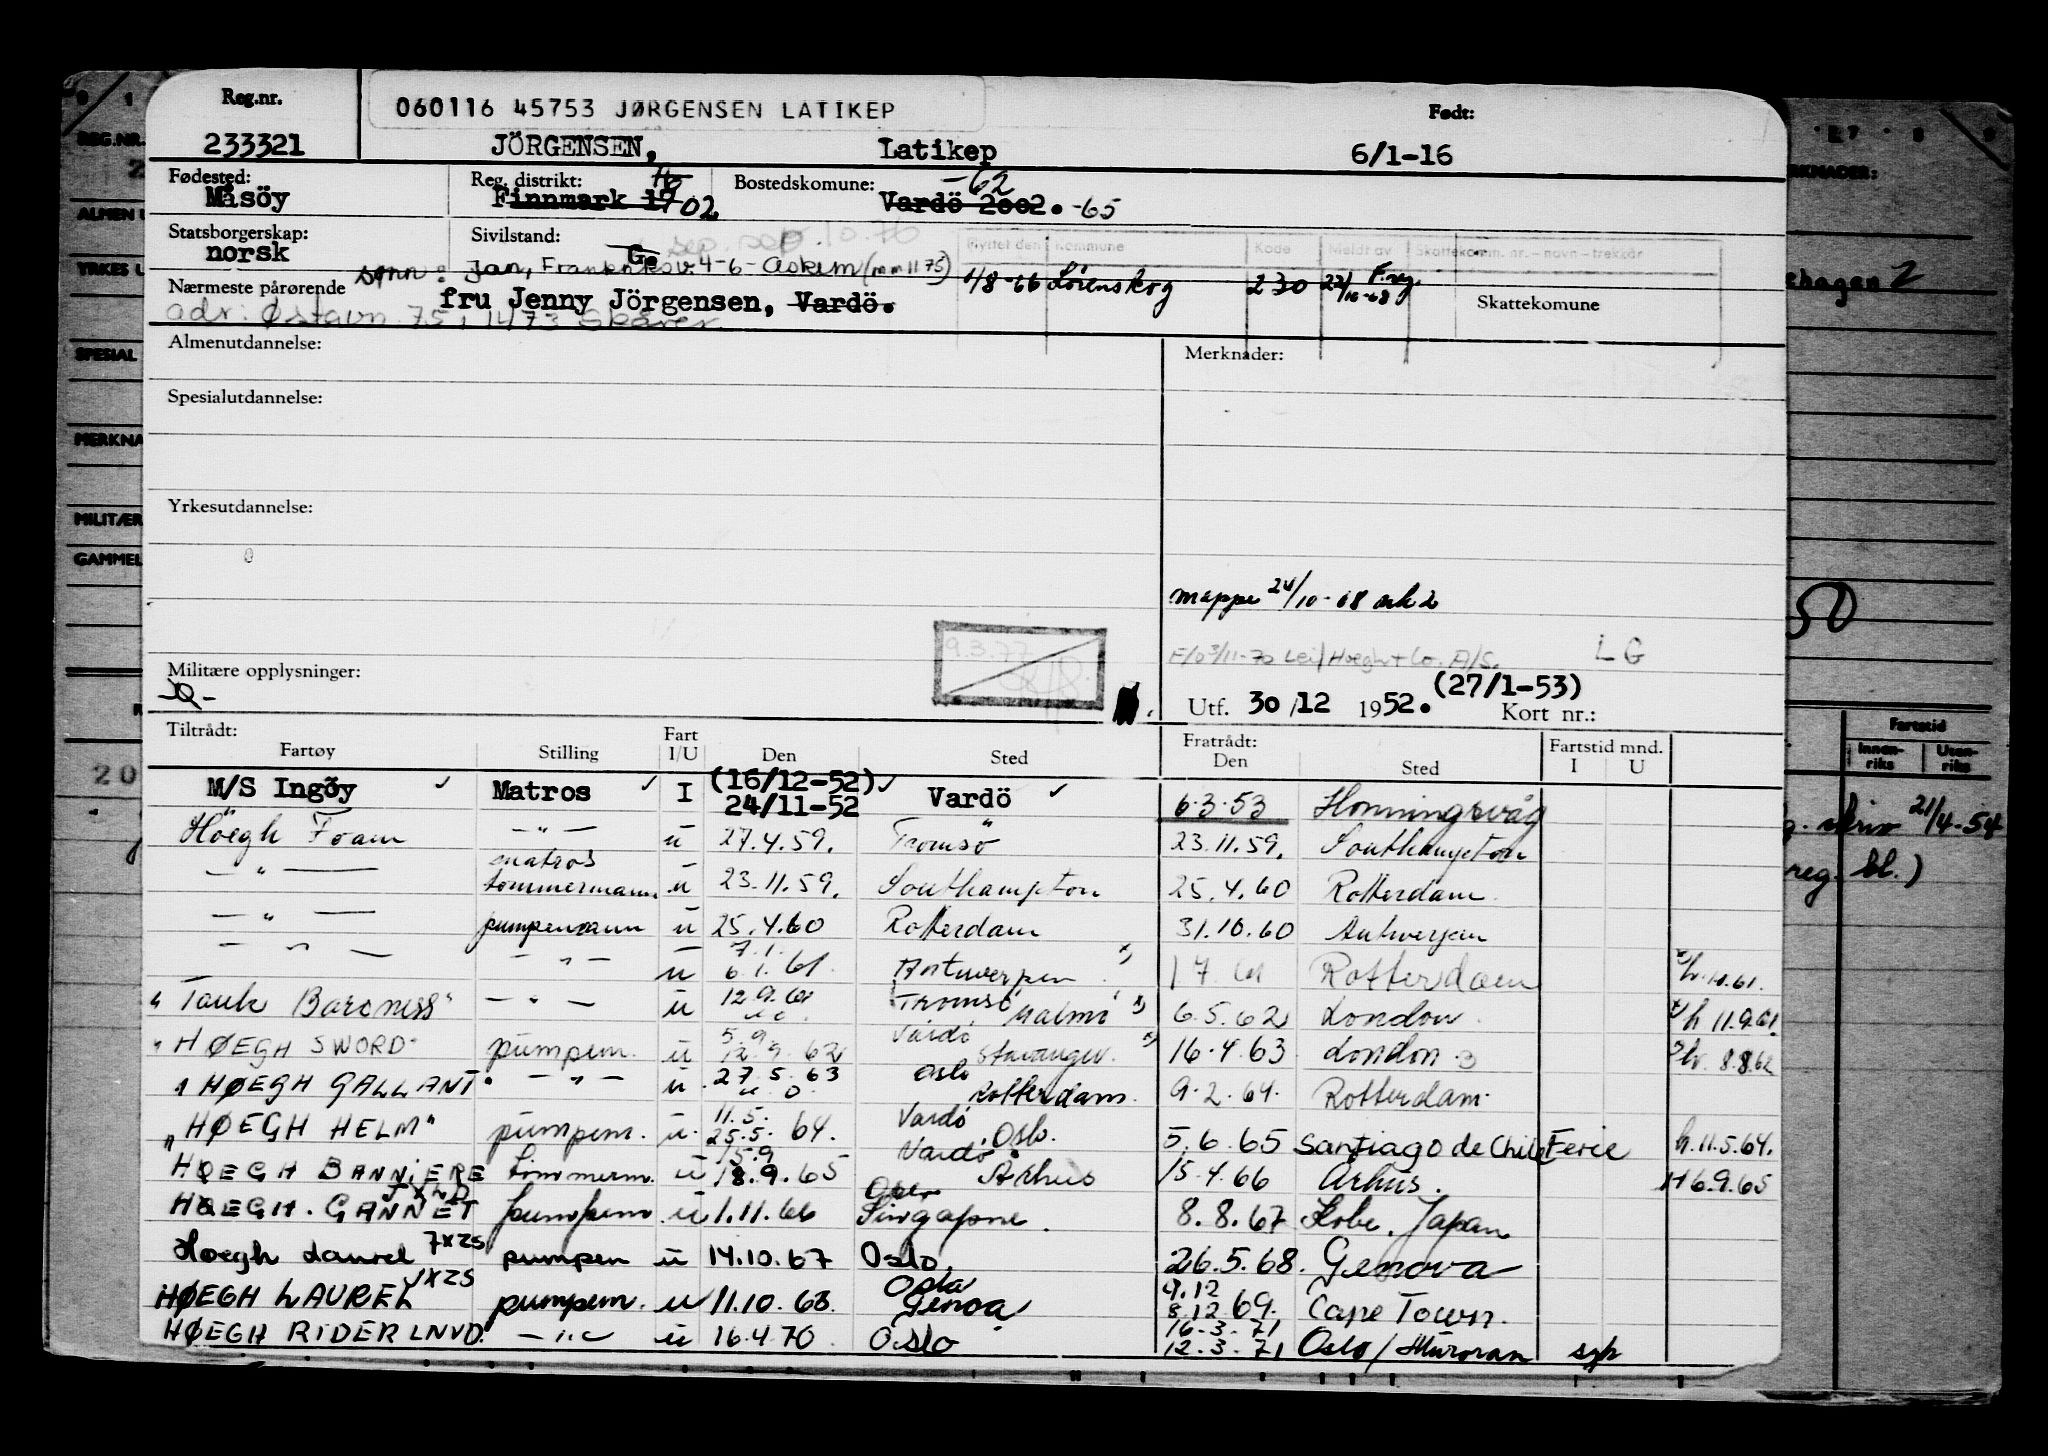 Reg.nr.
060116 45753 JØRGENSEN LATIKEP
Født:
233321 JÖRGENSEN, Latikep 6/1-16
Fødested: Reg. distrikt: Bostedskomune: -62
Måsöy Finnmark 19 02 Vardö 2002. -65
Statsborgerskap: Sivilstand:
norsk Ge sep. 10.76
Flyttet den Kommune Kode Meldt av Skattekomm. nr. - navn - trekkår
sønn: Jan, 4-6- Askim
1/8-66 Lørenskog 230 22/10-68 F.reg.
Nærmeste pårørende
fru Jenny Jörgensen, Vardö.
Skattekomune
adr: Østavn. 75, 1473 Skårer
Almenutdannelse: Merknader:
Spesialutdannelse:
Yrkesutdannelse:
mappe 24/10-68 ark 2
9.3.77
E/o 3/11-70 Leif Høegh + Co. A/S. LG
Militære opplysninger:
Utf. 30/12 1952. (27/1-53)
Kort nr.:
Tiltrådt: Fratrådt: Fartstid mnd.
Fartøy Stilling Fart I/U Den Sted Den Sted I U
M/S Ingöy Matros I (16/12-52) 24/11-52 Vardö 6.3.53 Honningsvåg
Höegh Foam — " — u 27.4.59. Tromsö 23.11.59. Southampton
— " — matros tømmermann u 23.11.59. Southampton 25.4.60 Rotterdam
— " — pumpemann u 25.4.60 Rotterdam 31.10.60 Antwerpen
— " — — " — u 7.1. 6.1.61 Antwerpen 1 7 61 Rotterdam h. 10.61.
"Tank Baroness" — " — u 12.9.61 Tromsö Malmö 6.5.62 London h 11.9.61.
"HØEGH SWORD" pumpem. u 5.9. 12.9.62 Vardö Stavanger 16.4.63 London h. 8.8.62
"HØEGH GALLANT" — " — u 27.5.63 Oslo Rotterdam. 9.2.64. Rotterdam.
"HØEGH HELM" pumpem. u. 11.5. 25.5.64. Vardö Oslo. 5.6.65 Santiago de Chile Ferie h. 11.5.64.
HØEGH BANNIERE tømmerm. u 15.9 18.9.65 Vardö Århus 15.4.66 Århus. H 6.9.65
HØEGH. GANNET JXLD pumpem u 1.11.66 Oslo Singapore. 8.8.67 Kobe. Japan
Høegh Laurel 7XZS pumpem u 14.10.67 Oslo. 26.5.68. Genova
HØEGH LAUREL JXZS pumpem. u 11.10.68. Oslo Genoa 9.12 8.12.69. Cape Town.
HØEGH RIDER LNVD. — " — u 16.4.70. Oslo 16.3.71 12.3.71 Oslo / Muroran syk
REG.NR.
SPESIAL
MERKNA
MILITÆR
GAMMEL
20
50
Fartstid
Innen-riks Uten-riks
21/4-54
reg. bl.)